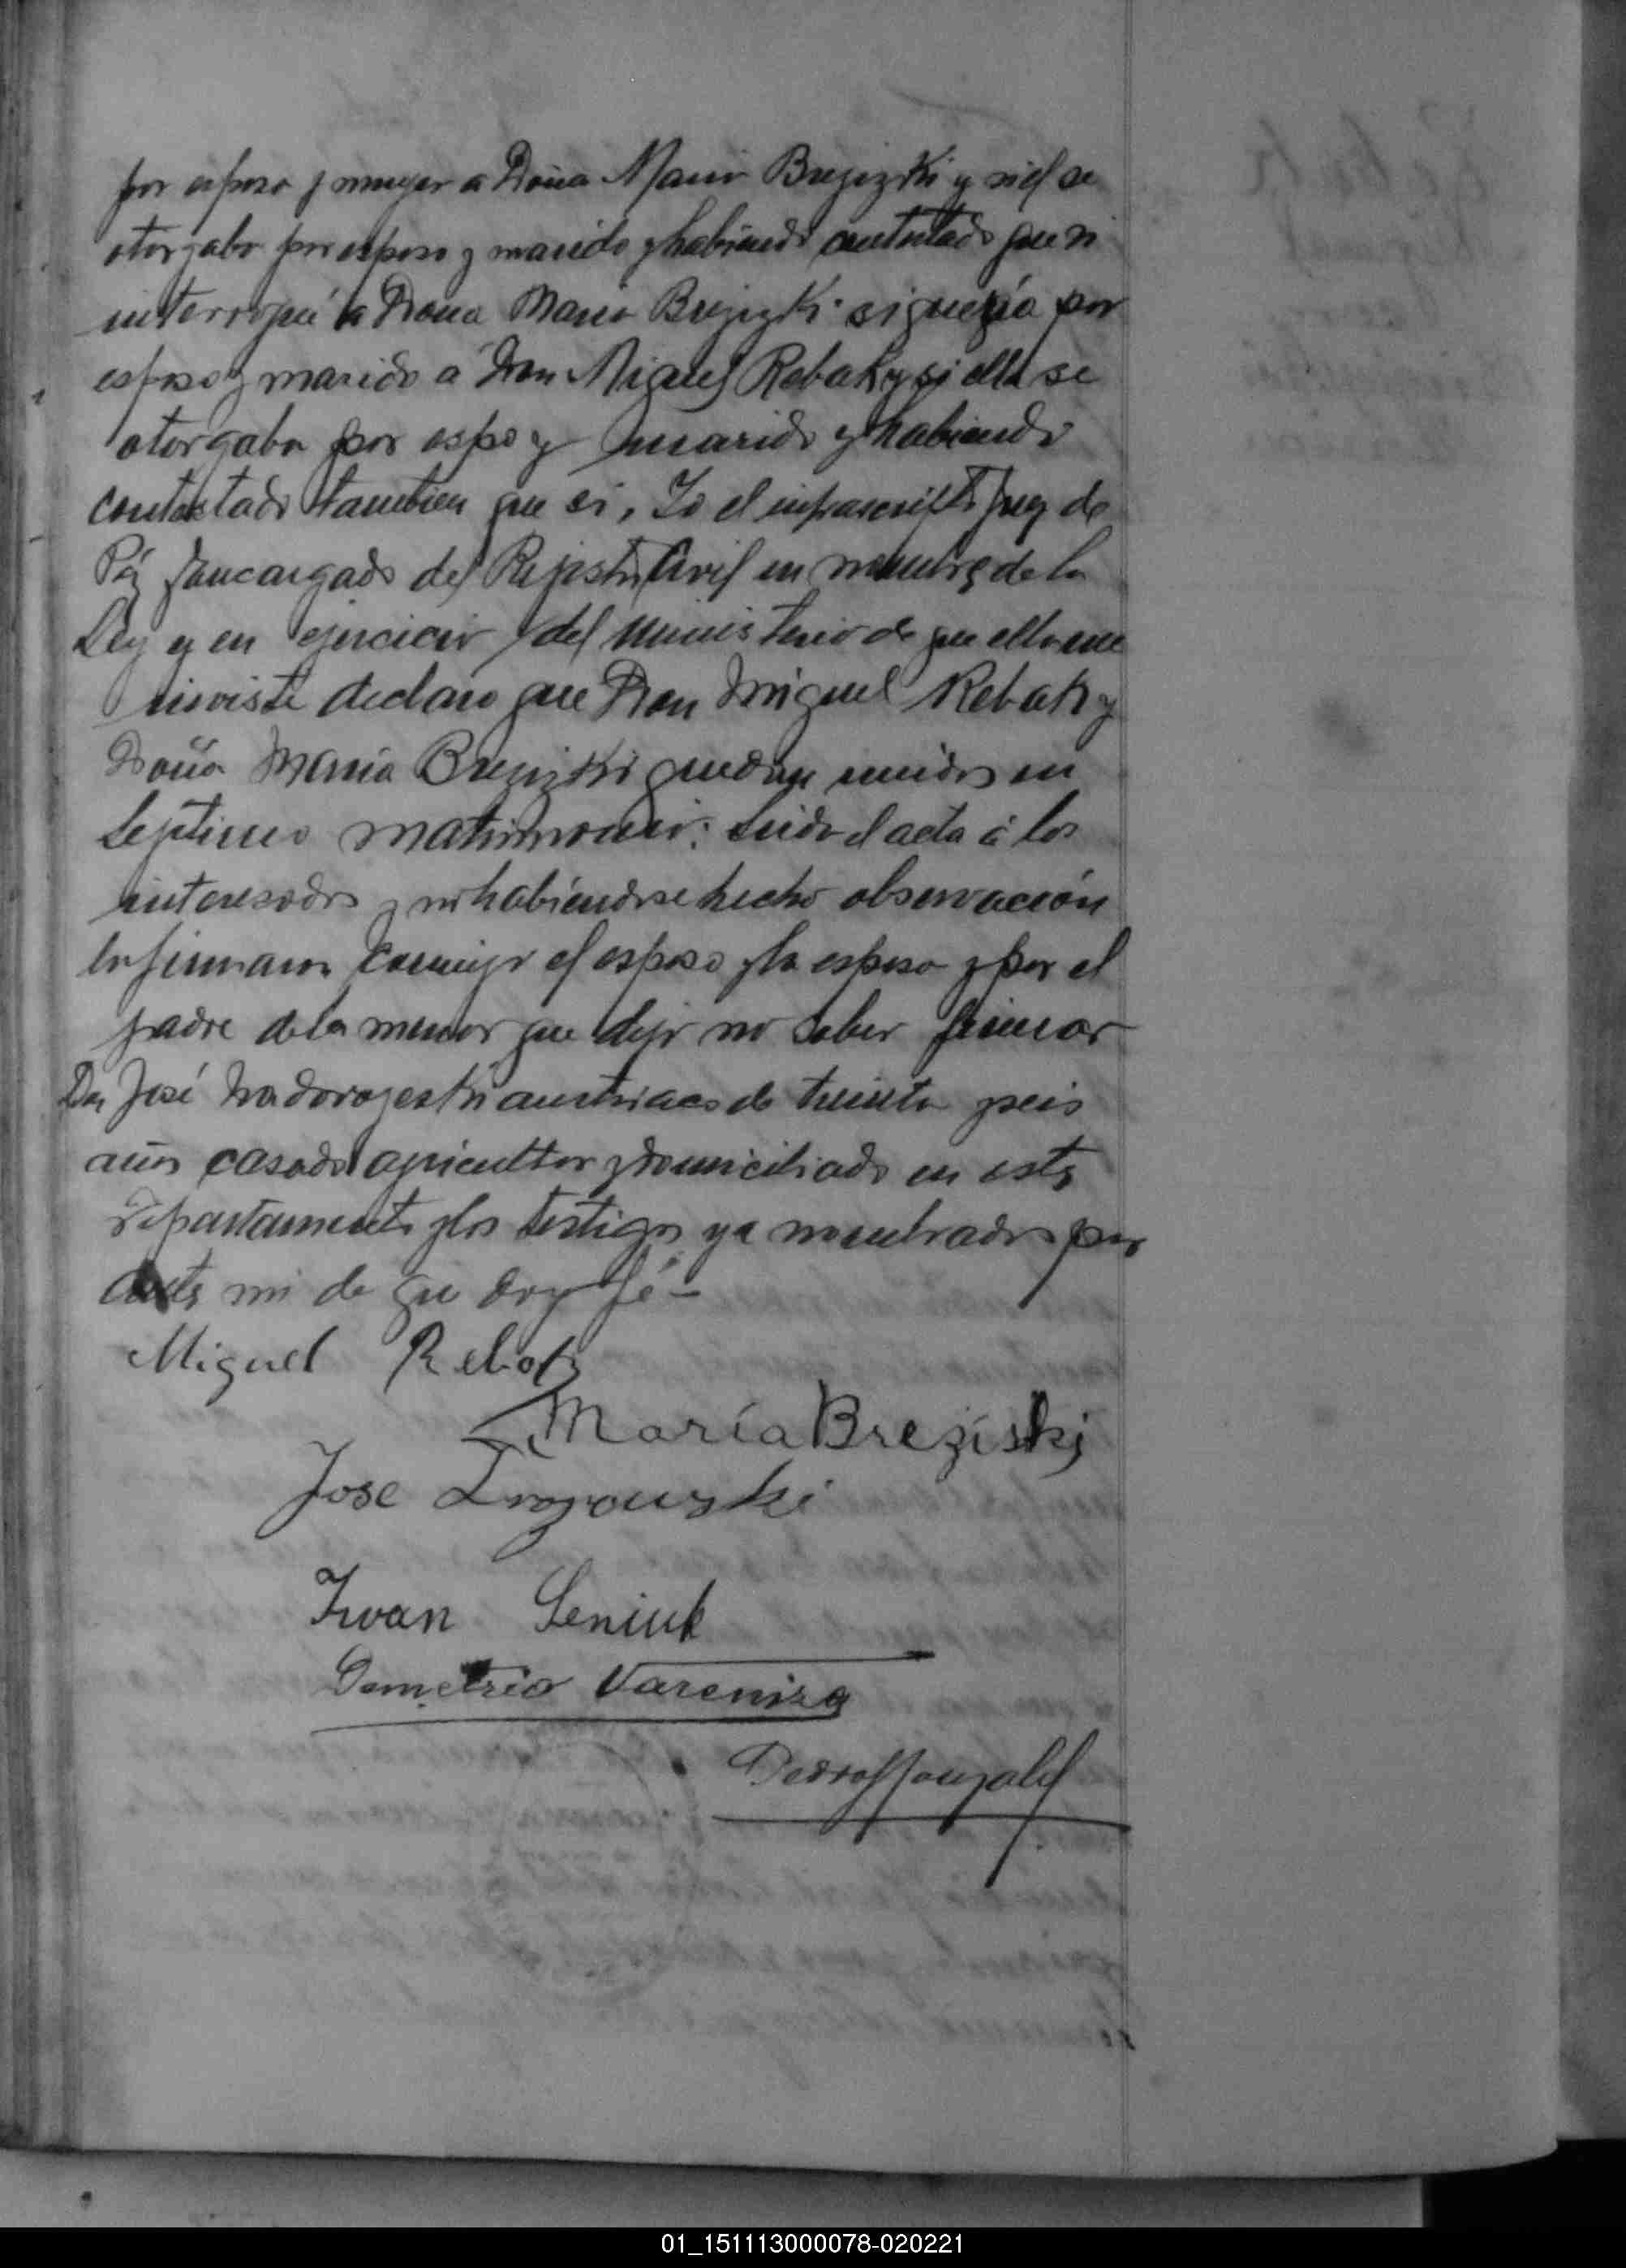 por esposa y muger a Doña Maria Brezizki y si el se
otorgaba por esposo y marido y habiendo contestado que si
interrogué a Doña Maria Brezizki si quería por
esposo y marido a Don Miguel Rebak y si ella se
otorgaba por espo y marido y habiendo
contestado tambien que si, Yo el infrascripto Juez de
Páz Encargado del Rejistro Civil en nombre de la
Ley y en ejercicio del ministerio de que ella me
inviste declaro que Don Miguel Rebak y
Doña Maria Brezizki quedan unidos en
lejitimo matrimonio: Leida el acta á los
interesados y no habiéndose hecho observación
la firmaron conmigo el esposo y la esposa y por el
padre de la menor que dijo no saber firmar
Don José austriaco de treinta y seis
años casado agricultor y domiciliado en este
departamento y los testigos ya nombrados por
ante mi de que doy fé -
Miguel Rebak
María Breziski
Jose
Iwan Seniuk
Demetrio Vareniza
Pedro Gonzalez
01_151113000078-020221